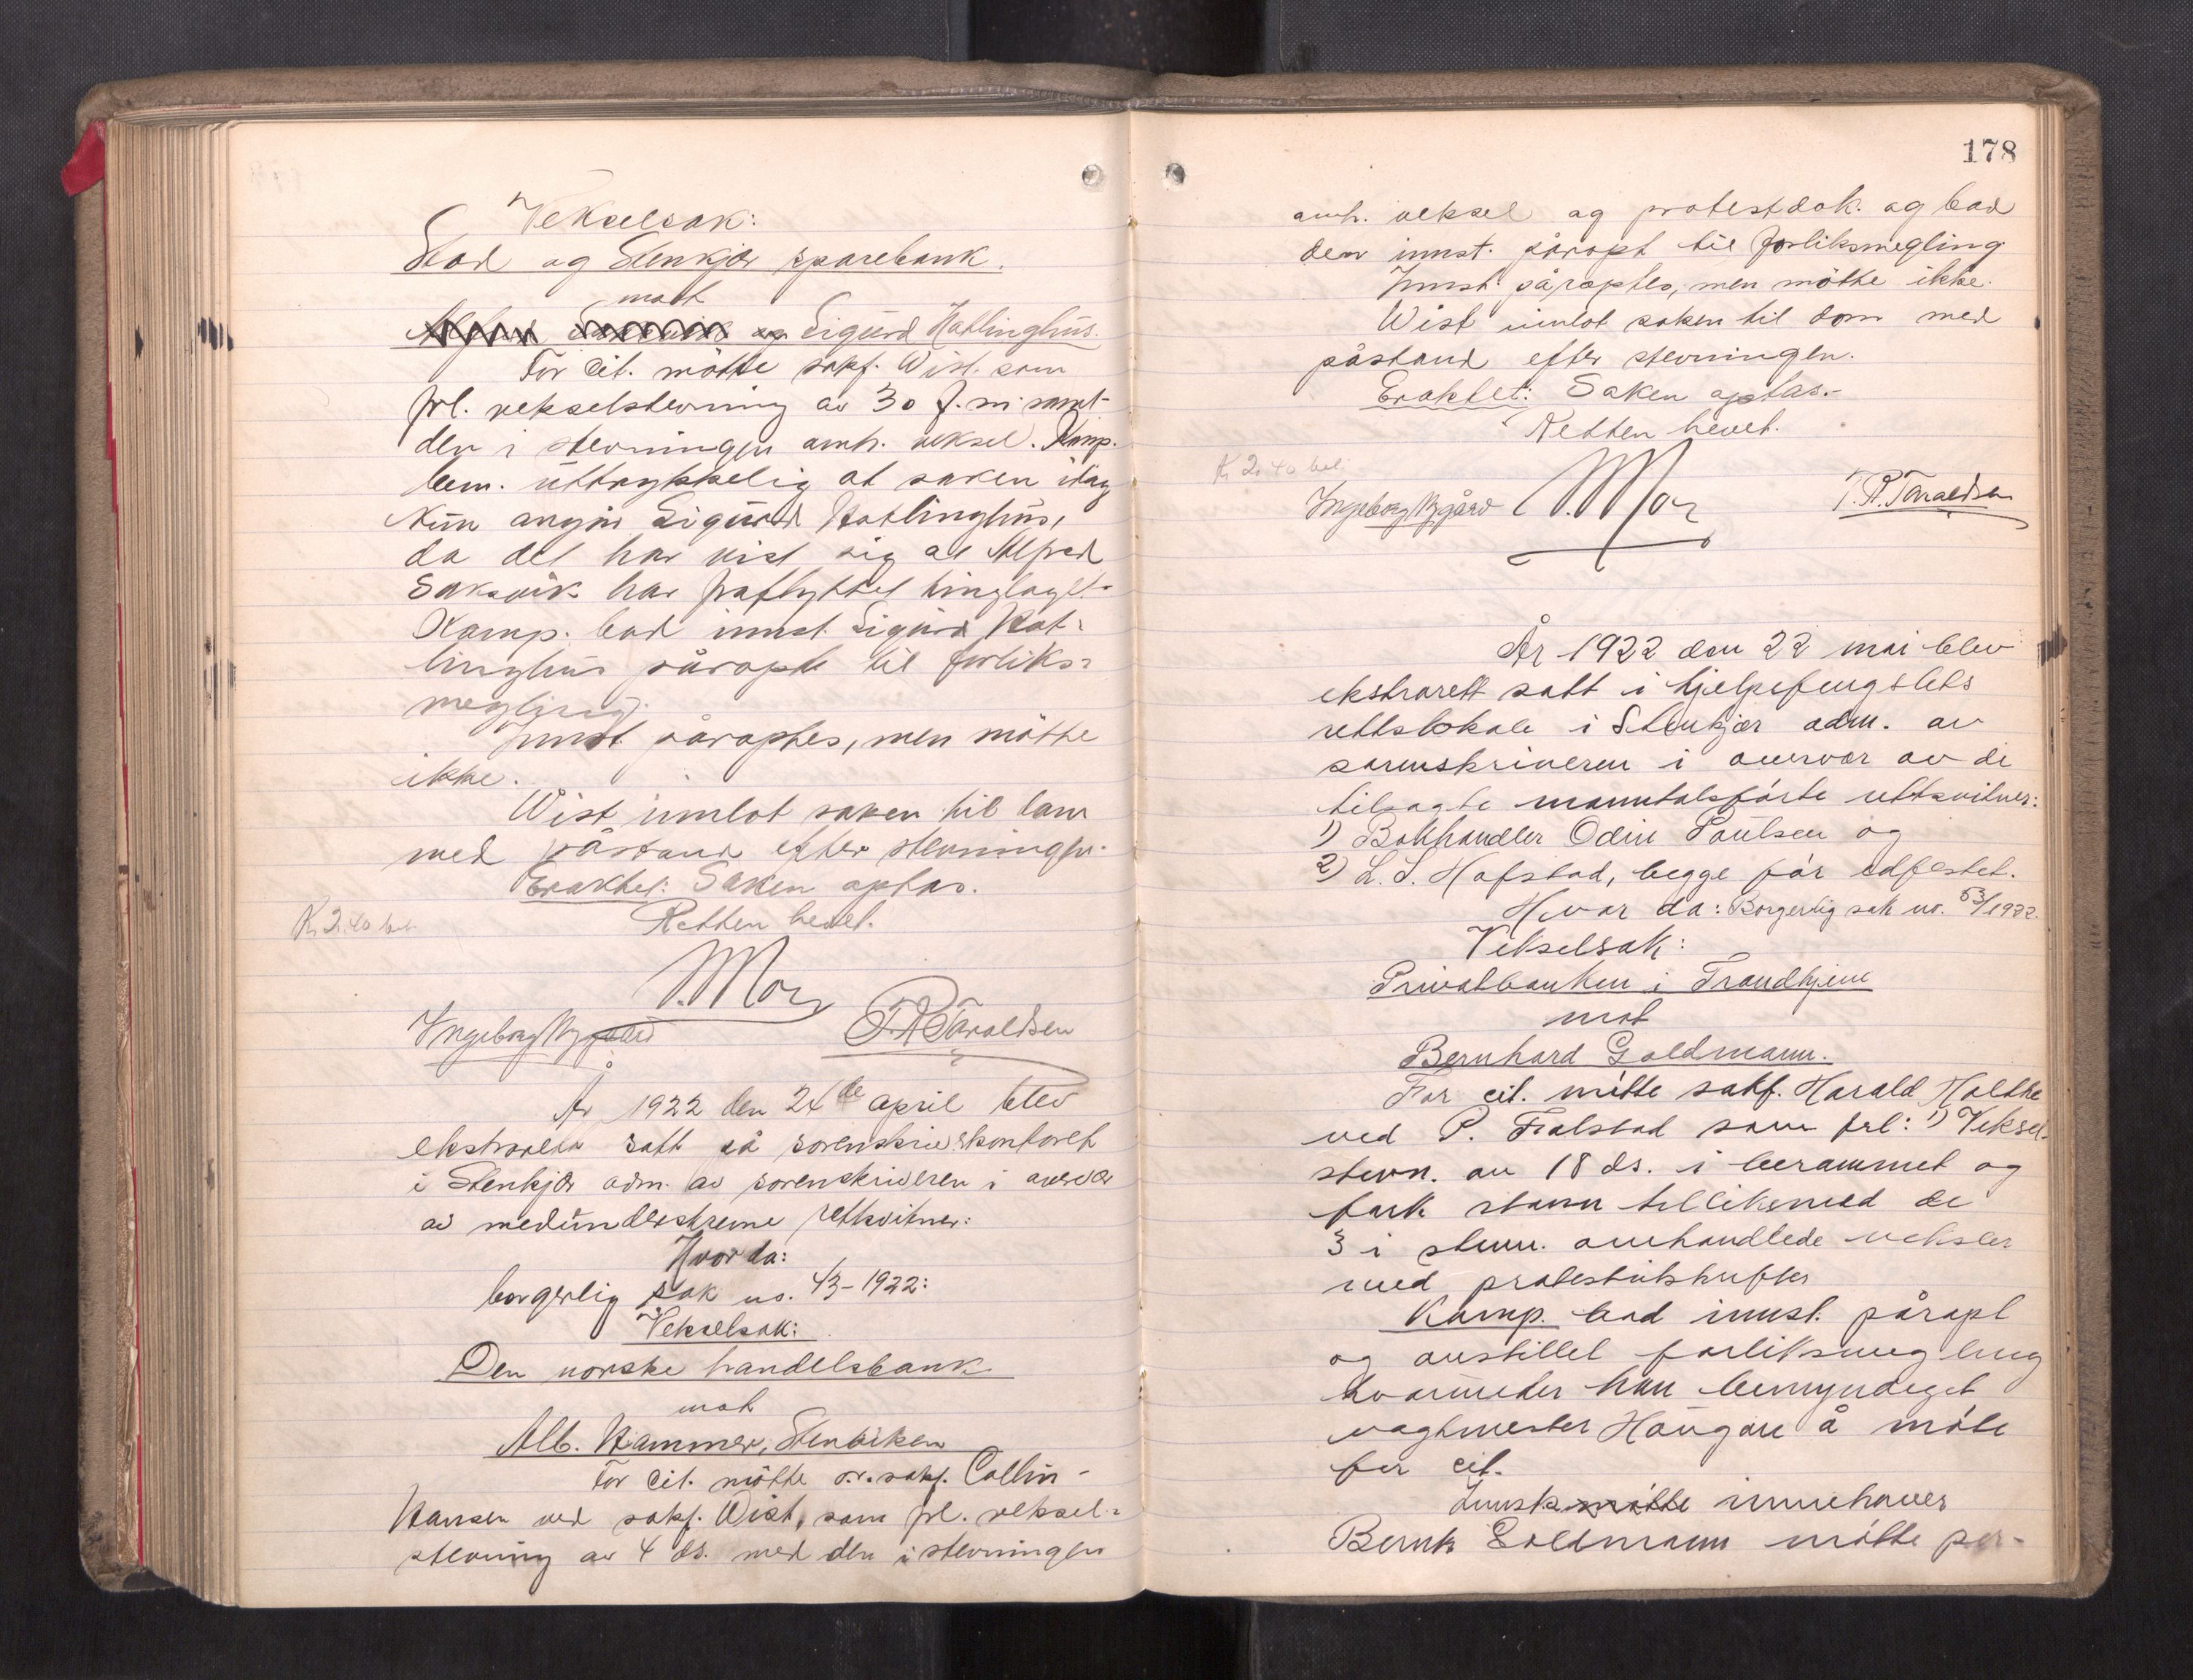 Vekselsak:
Stod og Stenkjær sparebank.
mot
og Sigurd Hatlinghus.
For cit. mötte sakf. Wist som
frl. vekselstevning av 30 f. m. samt
den i stevningen omh. veksel. Komp.
bem. uttrykkelig at saken idag
kun angår Sigurd Hatlinghus,
da det har vist sig at Alfred
Saksvik har fraflyttet tinglaget.
Komp. bad innst. Sigurd Hat-
linghus påropt til forliks-
megling.
Innst. påroptes, men mötte
ikke.
Wist innlot saken til dom
med påstand efter stevningen.
Eraktet: Saken optas.
Retten hevet.
K 2.40 bet.
Ingeborg Nygård
T. R. Taraldsen
År 1922 den 24de april blev
ekstrarett satt på sorenskriverkontoret
i Stenkjær adm. av sorenskriveren i overvær
av medunderskrevne rettsvitner:
Hvorda:
borgerlig sak no. 43-1922:
Vekselsak:
Den norske handelsbank
mot
Alb. Hammer, Stenviken
For cit. mötte o.r.sakf. Collin-
Hansen ved sakf. Wist, som frl. veksel-
stevning av 4 ds. med den i stevningen
178
omh. veksel og protestdok. og bad
den innst. påropt til forliksmegling
Innst. påroptes, men mötte ikke.
Wist innlot saken til dom med
påstand efter stevningen.
Eraktet: Saken optas.-
Retten hevet.
K 2.40 bet.
Ingeborg Nygård
T. R. Taraldsen
År 1922 den 22 mai blev
ekstrarett satt i hjelpefengslets
rettslokale i Stenkjær adm. av
sorenskriveren i overvær av de
tilsagte manntalsförte rettsvitner:
1) Bokhandler Odin Paulsen og
2) L. S. Hafstad, begge för edfestet.
Hvor da: Borgerlig sak no. 53/1922.
Vekselsak:
Privatbanken i Trondhjem
mot
Bernhard Goldmann.
For cit. mötte sakf. Harald Holthe
ved P. Fralstad som frl: 1) Veksel-
stevn. av 18 ds. i berammet og
fork. stand tillikemed de
3 i stevn. omhandlede veksler
med protestutskrifter
Komp. bad innst. påropt
og anstillet forliksmegling
hvorunder han bemyndiget
vagtmester Haugan å möte
for cit.
Innst. mötte innehaver
Bernh. Goldmann mötte per-